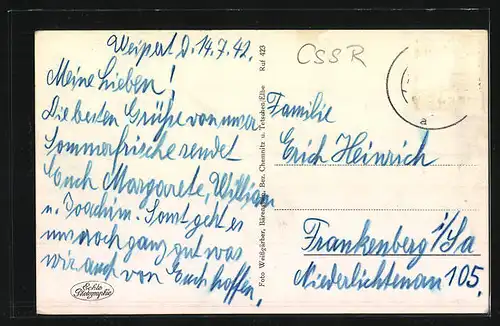 Weipert d. 14.7.42.
Meine Lieben!
Die besten Grüße von unsrer
Sommerfrische sendet
Euch Margarete, William
u. Joachim. Sonst geht es
uns noch ganz gut was
wir auch von Euch hoffen.
Echte
Photographie
Foto Weißgärber, Bärenstein, Bez. Chemnitz u. Tetschen/Elbe Ruf 423
CSSR
a
Familie
Erich Heinrich
Frankenberg i/Sa
Niederlichtenau 105.